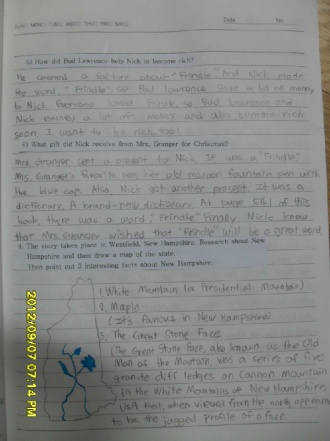 Date No
5) How did Bud Lawrence help Nick to become rich?
He opened a factory about "Frindle". And Nick made
the word, "Frindle", so Bud Lawrence gave a lot of money
to Nick. Everyone loved Frindle, so Bud Lawrence and
Nick earned a lot of money and also became rich
soon. I want to be rich, too!
6) What gift did Nick receive from Mrs. Granger for Christmas?
Mrs. Granger sent a present to Nick. It was a "Frindle"
Mrs. Granger's favorite pen, her old maroon fountain pen with
the blue cap. Also Nick got another present. It was a
dictionary. A brand-new dictionary. At page 541 of this
book, there was a word, "Frindle". Finally, Nick knew
that Mrs. Granger wished that "Frindle" will be a great word.
4. The story takes place in Westfield, New Hampshire. Research about New
Hampshire and then draw a map of the state.
Then point out 3 interesting facts about New Hampshire.
1. White Mountain (or Presidential Mountain)
2. Maple
(It's famous in New Hampshire)
3. The Great Stone Face
(The Great Stone Face, also known as the Old
Man of the Mountain was a series of five
granite cliff ledges on Cannon Mountain
in the White Mountains of New Hampshire,
USA that, when viewed from the north, appeared
to be the jagged profile of a face.
2012/09/07 07:14 PM